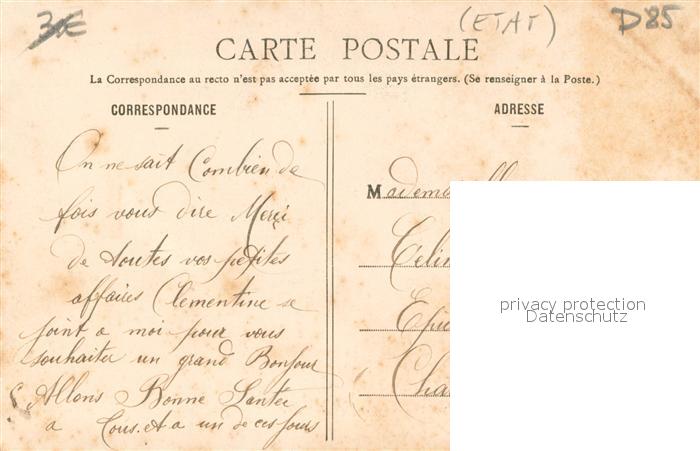 3E
(ETAT)
D85
CARTE POSTALE
La Correspondance au recto n'est pas acceptée par tous les pays étrangers. (Se renseigner à la Poste.)
CORRESPONDANCE
ADRESSE
On ne sait Combien de
fois vous dire Merci
de toutes vos petites
affaires Clementine se
joint a moi pour vous
souhaiter un grand Bonjour
Allons Bonne Santée
a Tous. et a un de ces jours
Mademoiselle
Celin
Epic
Cha
privacy protection
Datenschutz